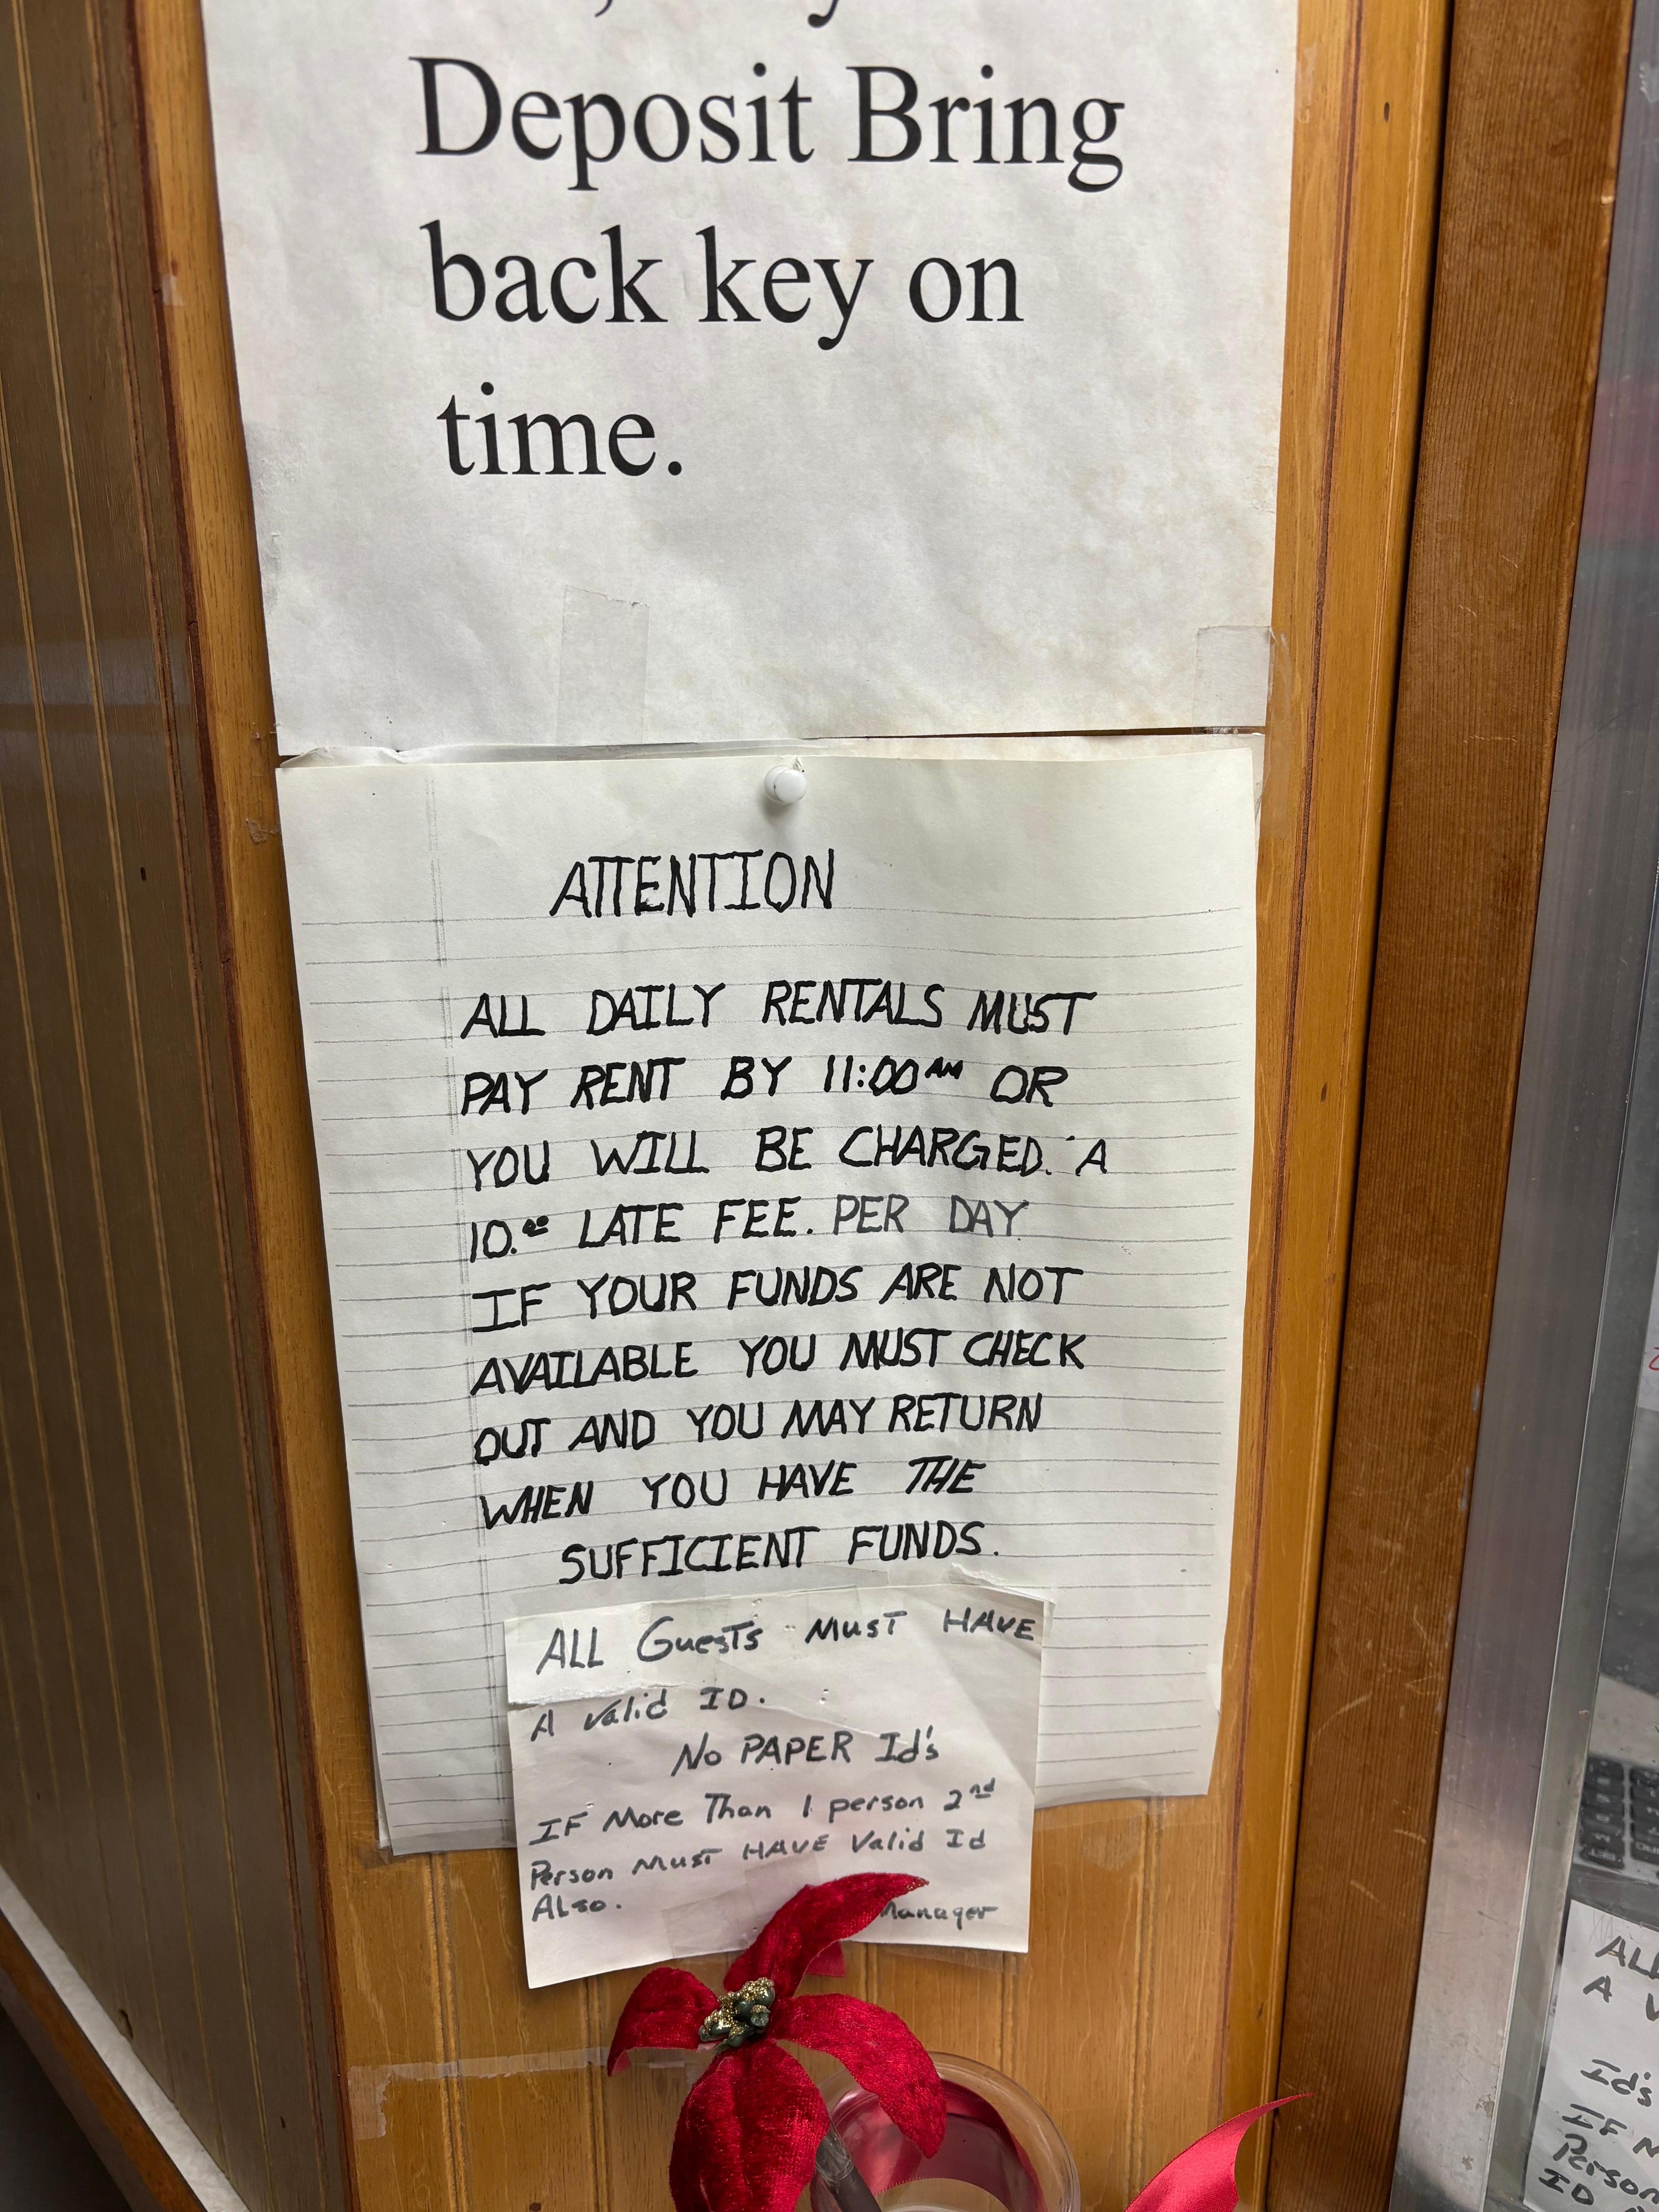 Deposit Bring
back key on
time.
ATTENTION
ALL DAILY RENTALS MUST
PAY RENT BY 11:00 AM OR
YOU WILL BE CHARGED. A
10.00 LATE FEE. PER DAY
IF YOUR FUNDS ARE NOT
AVAILABLE YOU MUST CHECK
OUT AND YOU MAY RETURN
WHEN YOU HAVE THE
SUFFICIENT FUNDS.
ALL Guests Must HAVE
A Valid ID.
No PAPER Id's
IF More Than 1 person 2nd
Person Must HAVE Valid Id
Also.
Manager
A
Id's
IF
Person
ID